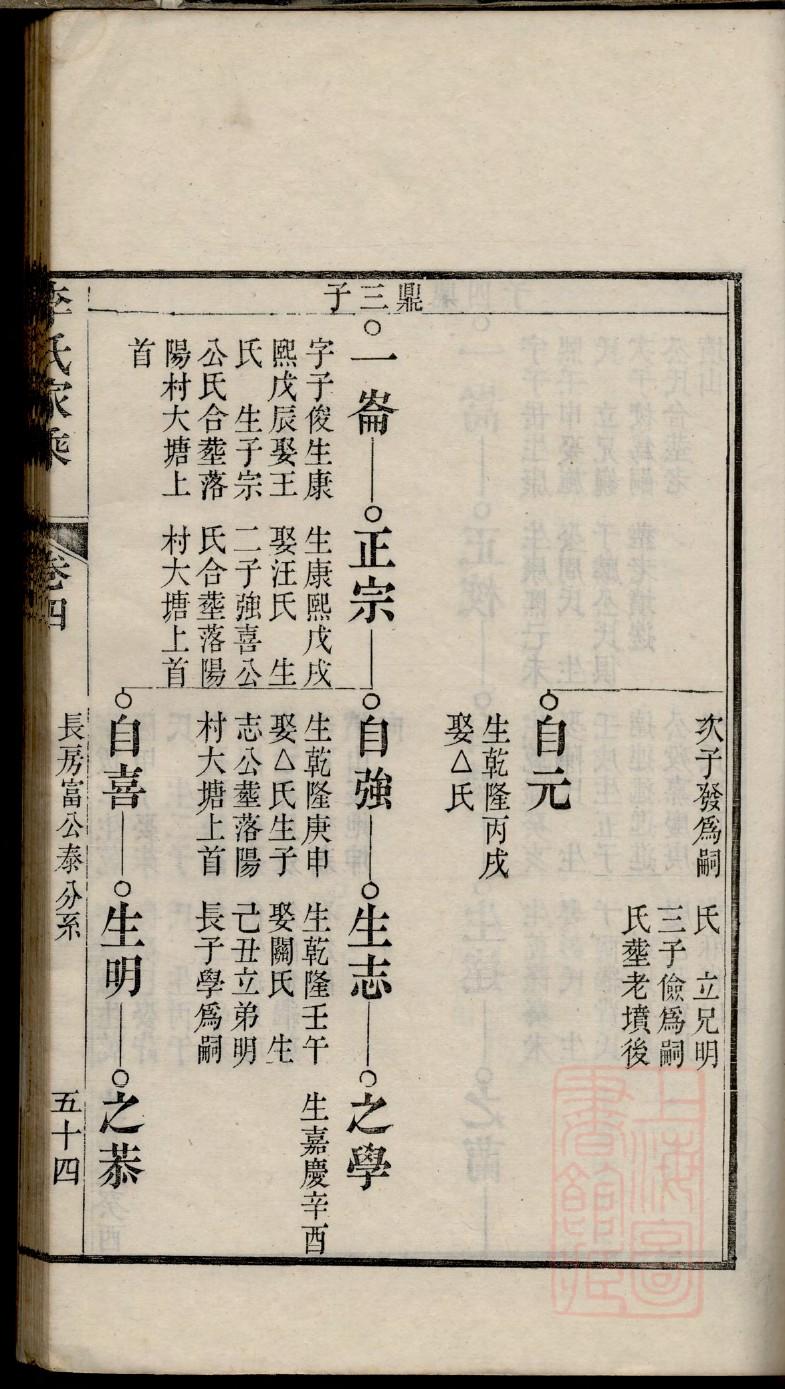 次子發爲嗣
氏　立兄明
三子儉爲嗣
氏塟老墳後
自元
生乾隆丙戌
娶△氏
鼎三子
一崙
字子俊生康
熙戊辰娶王
氏　生子宗
公氏合塟落
陽村大塘上
首
正宗
生康熙戊戌
娶汪氏　生
二子強喜公
氏合塟落陽
村大塘上首
自強
生乾隆庚申
娶△氏生子
志公塟落陽
村大塘上首
生志
生乾隆壬午
娶關氏　生
己丑立弟明
長子學爲嗣
之學
生嘉慶辛酉
自喜
生明
之恭
李氏家乘
卷四
長房富公泰分系
五十四
上海圖書館藏